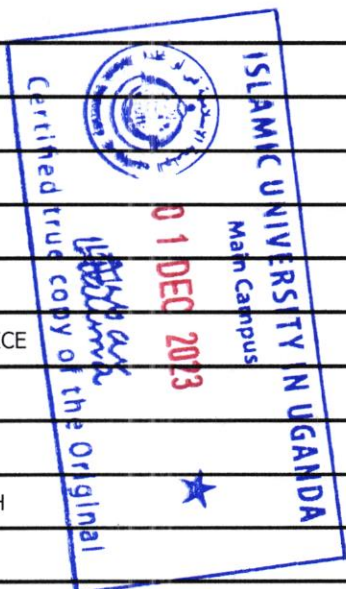 ISLAMIC UNIVERSITY IN UGANDA
Main Campus
01 DEC 2023
Certified true copy of the Original
ECE
H